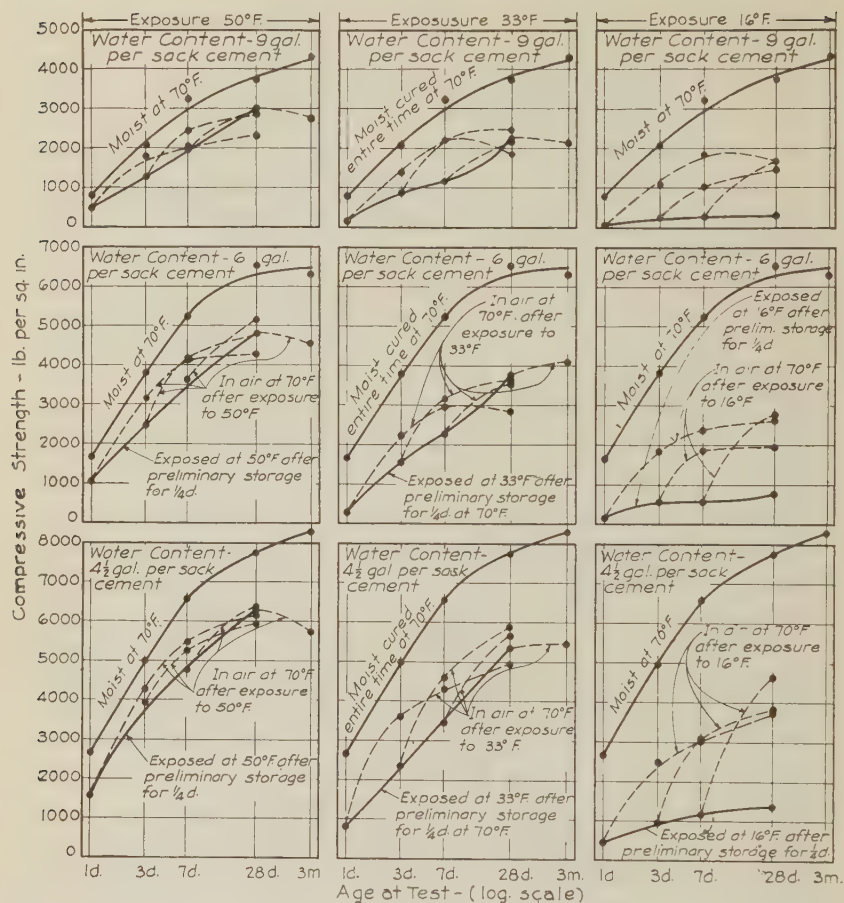 Exposure 50°F.
Exposusure 33°F
Exposure 16°F.
Compressive Strength - lb. per sq. in.
5000
4000
3000
2000
1000
0
Water Content-9 gal.
per sack cement
Moist at 70°F.
Water Content-9 gal.
per sack cement
Moist cured
entire time at 70°F.
Water Content-9 gal.
per sack cement
Moist at 70°F.
7000
6000
5000
4000
3000
2000
1000
0
Water Content-6 gal.
per sack cement
Moist at 70°F.
In air at 70°F
after exposure
to 50°F.
Exposed at 50°F after
preliminary storage
for ¼d.
Water Content-6 gal.
per sack cement
Moist cured
entire time at 70°F.
In air at
70°F. after
exposure to
33°F
Exposed at 33°F after
preliminary storage
for ¼d. at 70°F.
Water Content-6 gal.
per sack cement
Moist at 70°F.
Exposed
at 16°F after
prelim. storage
for ¼d
In air at 70°F
after exposure
to 16°F.
8000
7000
6000
5000
4000
3000
2000
1000
0
Water Content-
4½ gal. per sack
cement
Moist at 70°F.
In air at 70°F
after exposure to
50°F.
Exposed at 50°F after
preliminary storage
for ¼d.
Water Content-
4½ gal per sack
cement
Moist cured
entire time at 70°F.
In air at 70°F
after exposure
to 33°F.
Exposed at 33°F after
preliminary storage
for ¼d at 70°F.
Water Content-
4½ gal. per sack
cement
Moist at 70°F
In air at 70°F
after exposure
to 16°F.
Exposed at 16°F. after
preliminary storage for ¼d.
1d. 3d. 7d. 28d. 3m.
1d. 3d. 7d. 28d. 3m.
1d. 3d. 7d. 28d. 3m.
Age at Test - (log. scale)